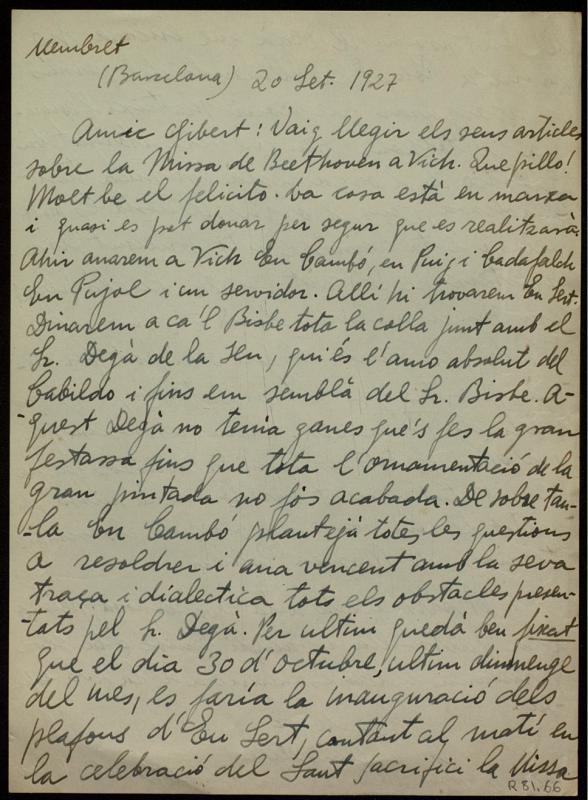 Membret
(Barcelona) 20 Set. 1927
Amic Gibert: Vaig llegir els seus articles
sobre la Missa de Beethoven a Vich. Que pillo!
Molt be el felicito. La cosa està en marxa
i quasi es pot donar per segur que es realitzarà.
Ahir anarem a Vich En Cambó, en Puig i Cadafalch
En Pujol i un servidor. Allí hi trovarem En Sert.
Dinarem a ca'l Bisbe tota la colla junt amb el
Sr. Degà de la Seu, qui és l'amo absolut del
Cabildo i fins em semblà del Sr. Bisbe. A-
-quest Degà no tenia ganes que's fes la gran
festassa fins que tota l'ornamentació de la
gran pintada no fós acabada. De sobre tau-
-la En Cambó plantejà totes les questions
a resoldrer i ana vencent amb la seva
traça i dialectica tots els obstacles presen-
-tats pel Sr. Degà. Per ultim quedà ben fixat
que el dia 30 d'octubre, ultim diumenge
del mes, es faría la inauguració dels
plafons d'En Sert, cantant al matí en
la celebració del Sant Sacrifici la Missa
R 81.66